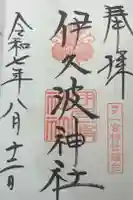 奉拝
伊久波神社
令和七年八月十二日